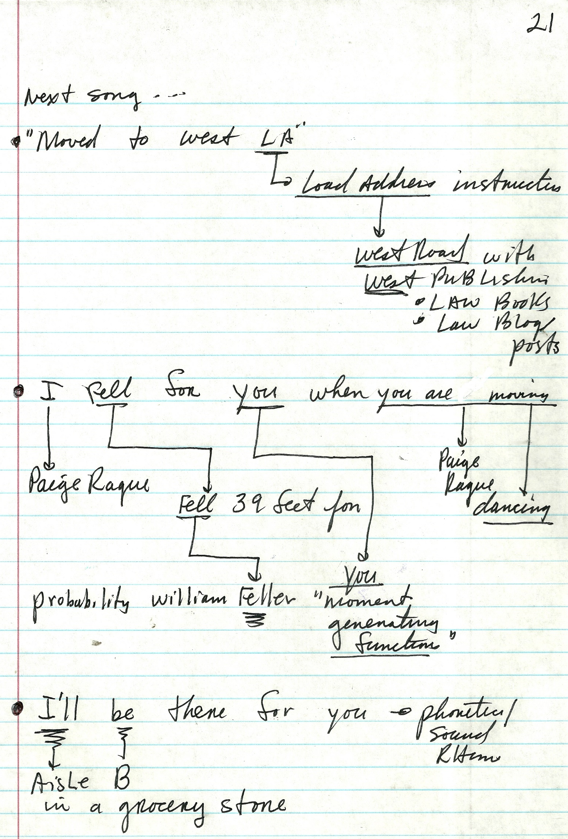 21
Next song ....
"Moved to west LA"
Load Address
West Road with
West PUBLishin
• LAW Books
• Law Blog
posts
I Fell for you when you are moving
Paige Raque
Paige
Raque
dancing
Fell 39 feet for
You
probability william Feller "moment
generating
function"
I'll be there for you → phonetics/
Sound
Aisle B
in a grocery store